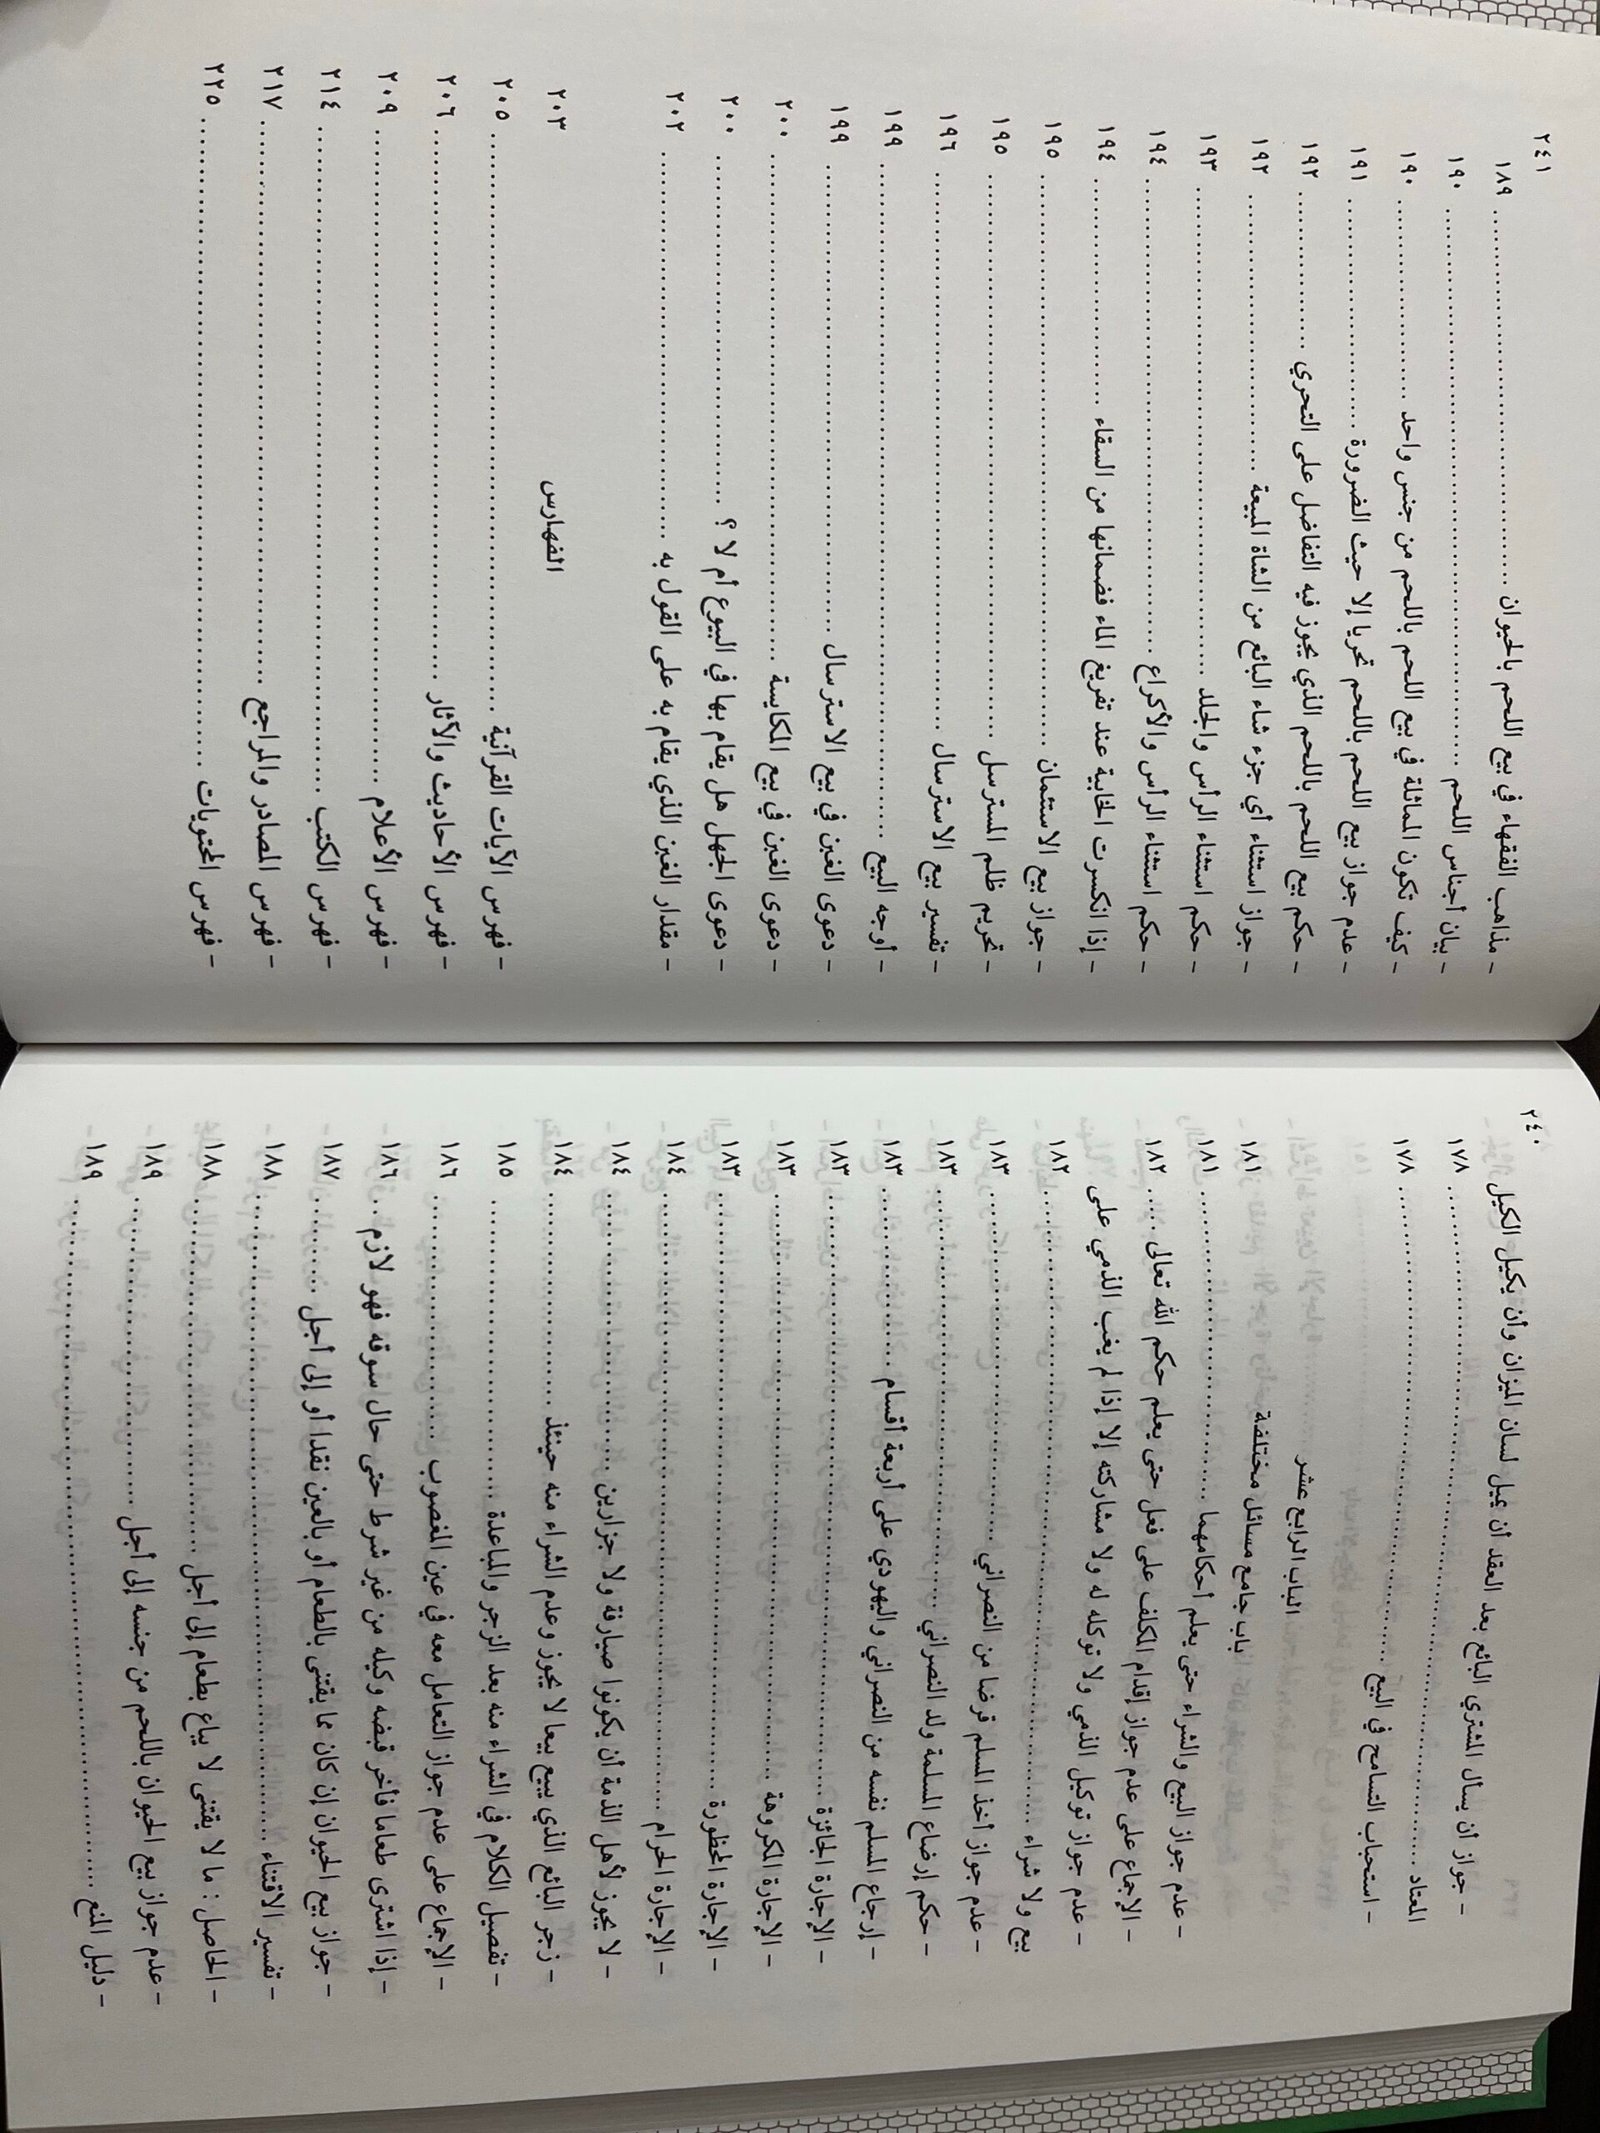 ٢٤٠
- جواز أن يسأل المشتري البائع بعد العقد أن يميل لسان الميزان وأن يكيل الكيل
المعتاد ........ ١٧٨
- استحباب التسامح في البيع ........ ١٧٨
الباب الرابع عشر
باب جامع مسائل مختلفة ١٨١
- عدم جواز البيع والشراء حتى يعلم أحكامهما ........ ١٨١
- الإجماع على عدم جواز إقدام المكلف على فعل حتى يعلم حكم الله تعالى ..... ١٨٢
- عدم جواز توكيل الذمي ولا توكله له ولا مشاركته إلا إذا لم يغب الذمي على
بيع ولا شراء ........ ١٨٢
- عدم جواز أخذ المسلم قرضا من النصراني ........ ١٨٣
- حكم إرضاع المسلمة ولد النصراني ........ ١٨٣
- إرجاع المسلم نفسه من النصراني واليهودي على أربعة أقسام ........ ١٨٣
- الإجارة الجائزة ........ ١٨٣
- الإجارة المكروهة ........ ١٨٣
- الإجارة المحظورة ........ ١٨٣
- الإجارة الحرام ........ ١٨٤
- لا يجوز لأهل الذمة أن يكونوا صيارفة ولا جزارين ........ ١٨٤
- زجر البائع الذي يبيع بيعا لا يجوز وعدم الشراء منه حينئذ ........ ١٨٤
- تفصيل الكلام في الشراء منه بعد الزجر والمباعدة ........ ١٨٥
- الإجماع على عدم جواز التعامل معه في عين المغصوب ........ ١٨٦
- إذا اشترى طعاما فأخر قبضه وكيله من غير شرط حتى حال سوقه فهو لازم .. ١٨٦
- جواز بيع الحيوان إن كان مما يقتنى بالطعام أو بالعين نقدا أو إلى أجل ........ ١٨٧
- تفسير الاقتناء ........ ١٨٨
- الحاصل : ما لا يقتنى لا يباع بطعام إلى أجل ........ ١٨٨
- عدم جواز بيع الحيوان باللحم من جنسه إلى أجل ........ ١٨٩
- دليل المنع ........ ١٨٩
٢٤١
- مذاهب الفقهاء في بيع اللحم بالحيوان ........ ١٨٩
- بيان أجناس اللحم ........ ١٩٠
- كيف تكون المماثلة في بيع اللحم باللحم من جنس واحد ........ ١٩٠
- عدم جواز بيع اللحم باللحم تحريا إلا حيث الضرورة ........ ١٩١
- حكم بيع اللحم باللحم الذي يجوز فيه التفاضل على التحري ........ ١٩٢
- جواز استثناء أي جزء شاء البائع من الشاة المبيعة ........ ١٩٢
- حكم استثناء الرأس والجلد ........ ١٩٣
- حكم استثناء الرأس والأكراع ........ ١٩٤
- إذا انكسرت الخابية عند تفريغ الماء فضمانها من السقاء ........ ١٩٤
- جواز بيع الاستئمان ........ ١٩٥
- تحريم ظلم المسترسل ........ ١٩٥
- تفسير بيع الاسترسال ........ ١٩٦
- أوجه البيع ........ ١٩٩
- دعوى الغبن في بيع الاسترسال ........ ١٩٩
- دعوى الغبن في بيع المكايسة ........ ٢٠٠
- دعوى الجهل هل يقام بها في البيوع أم لا ؟ ........ ٢٠٠
- مقدار الغبن الذي يقام به على القول به ........ ٢٠٢
الفهارس ٢٠٣
- فهرس الآيات القرآنية ........ ٢٠٥
- فهرس الأحاديث والآثار ........ ٢٠٦
- فهرس الأعلام ........ ٢٠٩
- فهرس الكتب ........ ٢١٤
- فهرس المصادر والمراجع ........ ٢١٧
- فهرس المحتويات ........ ٢٢٥